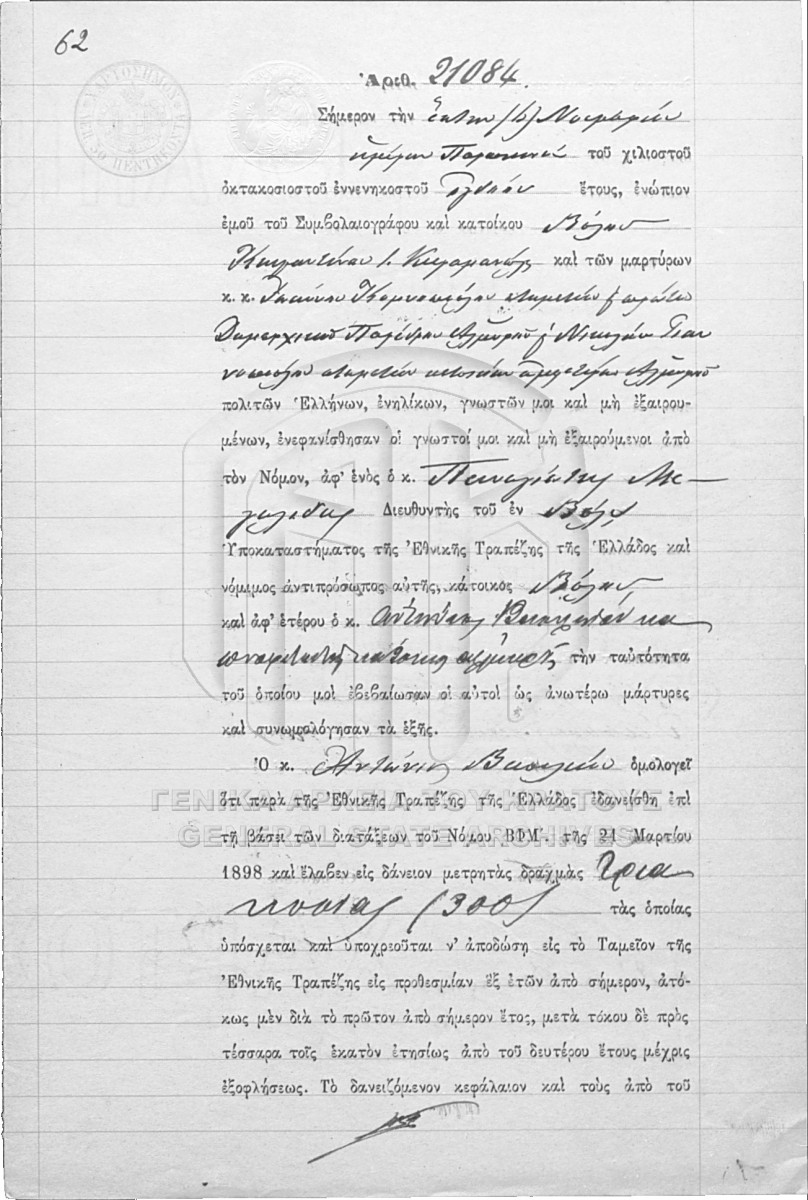 62
Ἀριθ. 21084.
Σήμερον τὴν ἕκτην (6) Νοεμβρίου
ἡμέραν Παρασκευὴ τοῦ χιλιοστοῦ
ὀκτακοσιοστοῦ ἐννενηκοστοῦ ὀγδόου ἔτους, ἐνώπιον
ἐμοῦ τοῦ Συμβολαιογράφου καὶ κατοίκου Βόλου
Κωνσταντίνου Ι. καὶ τῶν μαρτύρων
κ. κ. Ἰωάννου κτηματίου πρώτου
Δημαρχικοῦ Παρέδρου Ἁλμυροῦ Νικολάου
κτηματίου κατοίκων ἀμφοτέρων Ἁλμυροῦ
πολιτῶν Ἑλλήνων, ἐνηλίκων, γνωστῶν μοι καὶ μὴ ἐξαιρου-
μένων, ἐνεφανίσθησαν οἱ γνωστοί μοι καὶ μὴ ἐξαιρούμενοι ἀπὸ
τὸν Νόμον, ἀφ' ἑνὸς ὁ κ. Παναγιώτης
Διευθυντὴς τοῦ ἐν Βόλῳ
Ὑποκαταστήματος τῆς Ἐθνικῆς Τραπέζης τῆς Ἑλλάδος καὶ
νόμιμος ἀντιπρόσωπος αὐτῆς, κάτοικος Βόλου
καὶ ἀφ' ἑτέρου ὁ κ. Ἀντώνιος Βασιλείου κα
κάτοικος τὴν ταὐτότητα
τοῦ ὁποίου μοὶ ἐβεβαίωσαν οἱ αὐτοὶ ὡς ἀνωτέρω μάρτυρες
καὶ συνωμολόγησαν τὰ ἑξῆς.
Ὁ κ. Ἀντώνιος Βασιλείου ὁμολογεῖ
ὅτι παρὰ τῆς Ἐθνικῆς Τραπέζης τῆς Ἑλλάδος ἐδανείσθη ἐπὶ
ΓΕΝΙΚΑ ΑΡΧΕΙΑ ΤΟΥ ΚΡΑΤΟΥΣ
GENERAL STATE ARCHIVES
τῇ βάσει τῶν διατάξεων τοῦ Νόμου ΒΦΜ΄. τῆς 21 Μαρτίου
1898 καὶ ἔλαβεν εἰς δάνειον μετρητὰς δραχμὰς τρια
κοσίας (300) τὰς ὁποίας
ὑπόσχεται καὶ ὑποχρεοῦται ν' ἀποδώσῃ εἰς τὸ Ταμεῖον τῆς
Ἐθνικῆς Τραπέζης εἰς προθεσμίαν ἓξ ἐτῶν ἀπὸ σήμερον, ἀτό-
κως μὲν διὰ τὸ πρῶτον ἀπὸ σήμερον ἔτος, μετὰ τόκου δὲ πρὸς
τέσσαρα τοῖς ἑκατὸν ἐτησίως ἀπὸ τοῦ δευτέρου ἔτους μέχρις
ἐξοφλήσεως. Τὸ δανειζόμενον κεφάλαιον καὶ τοὺς ἀπὸ τοῦ